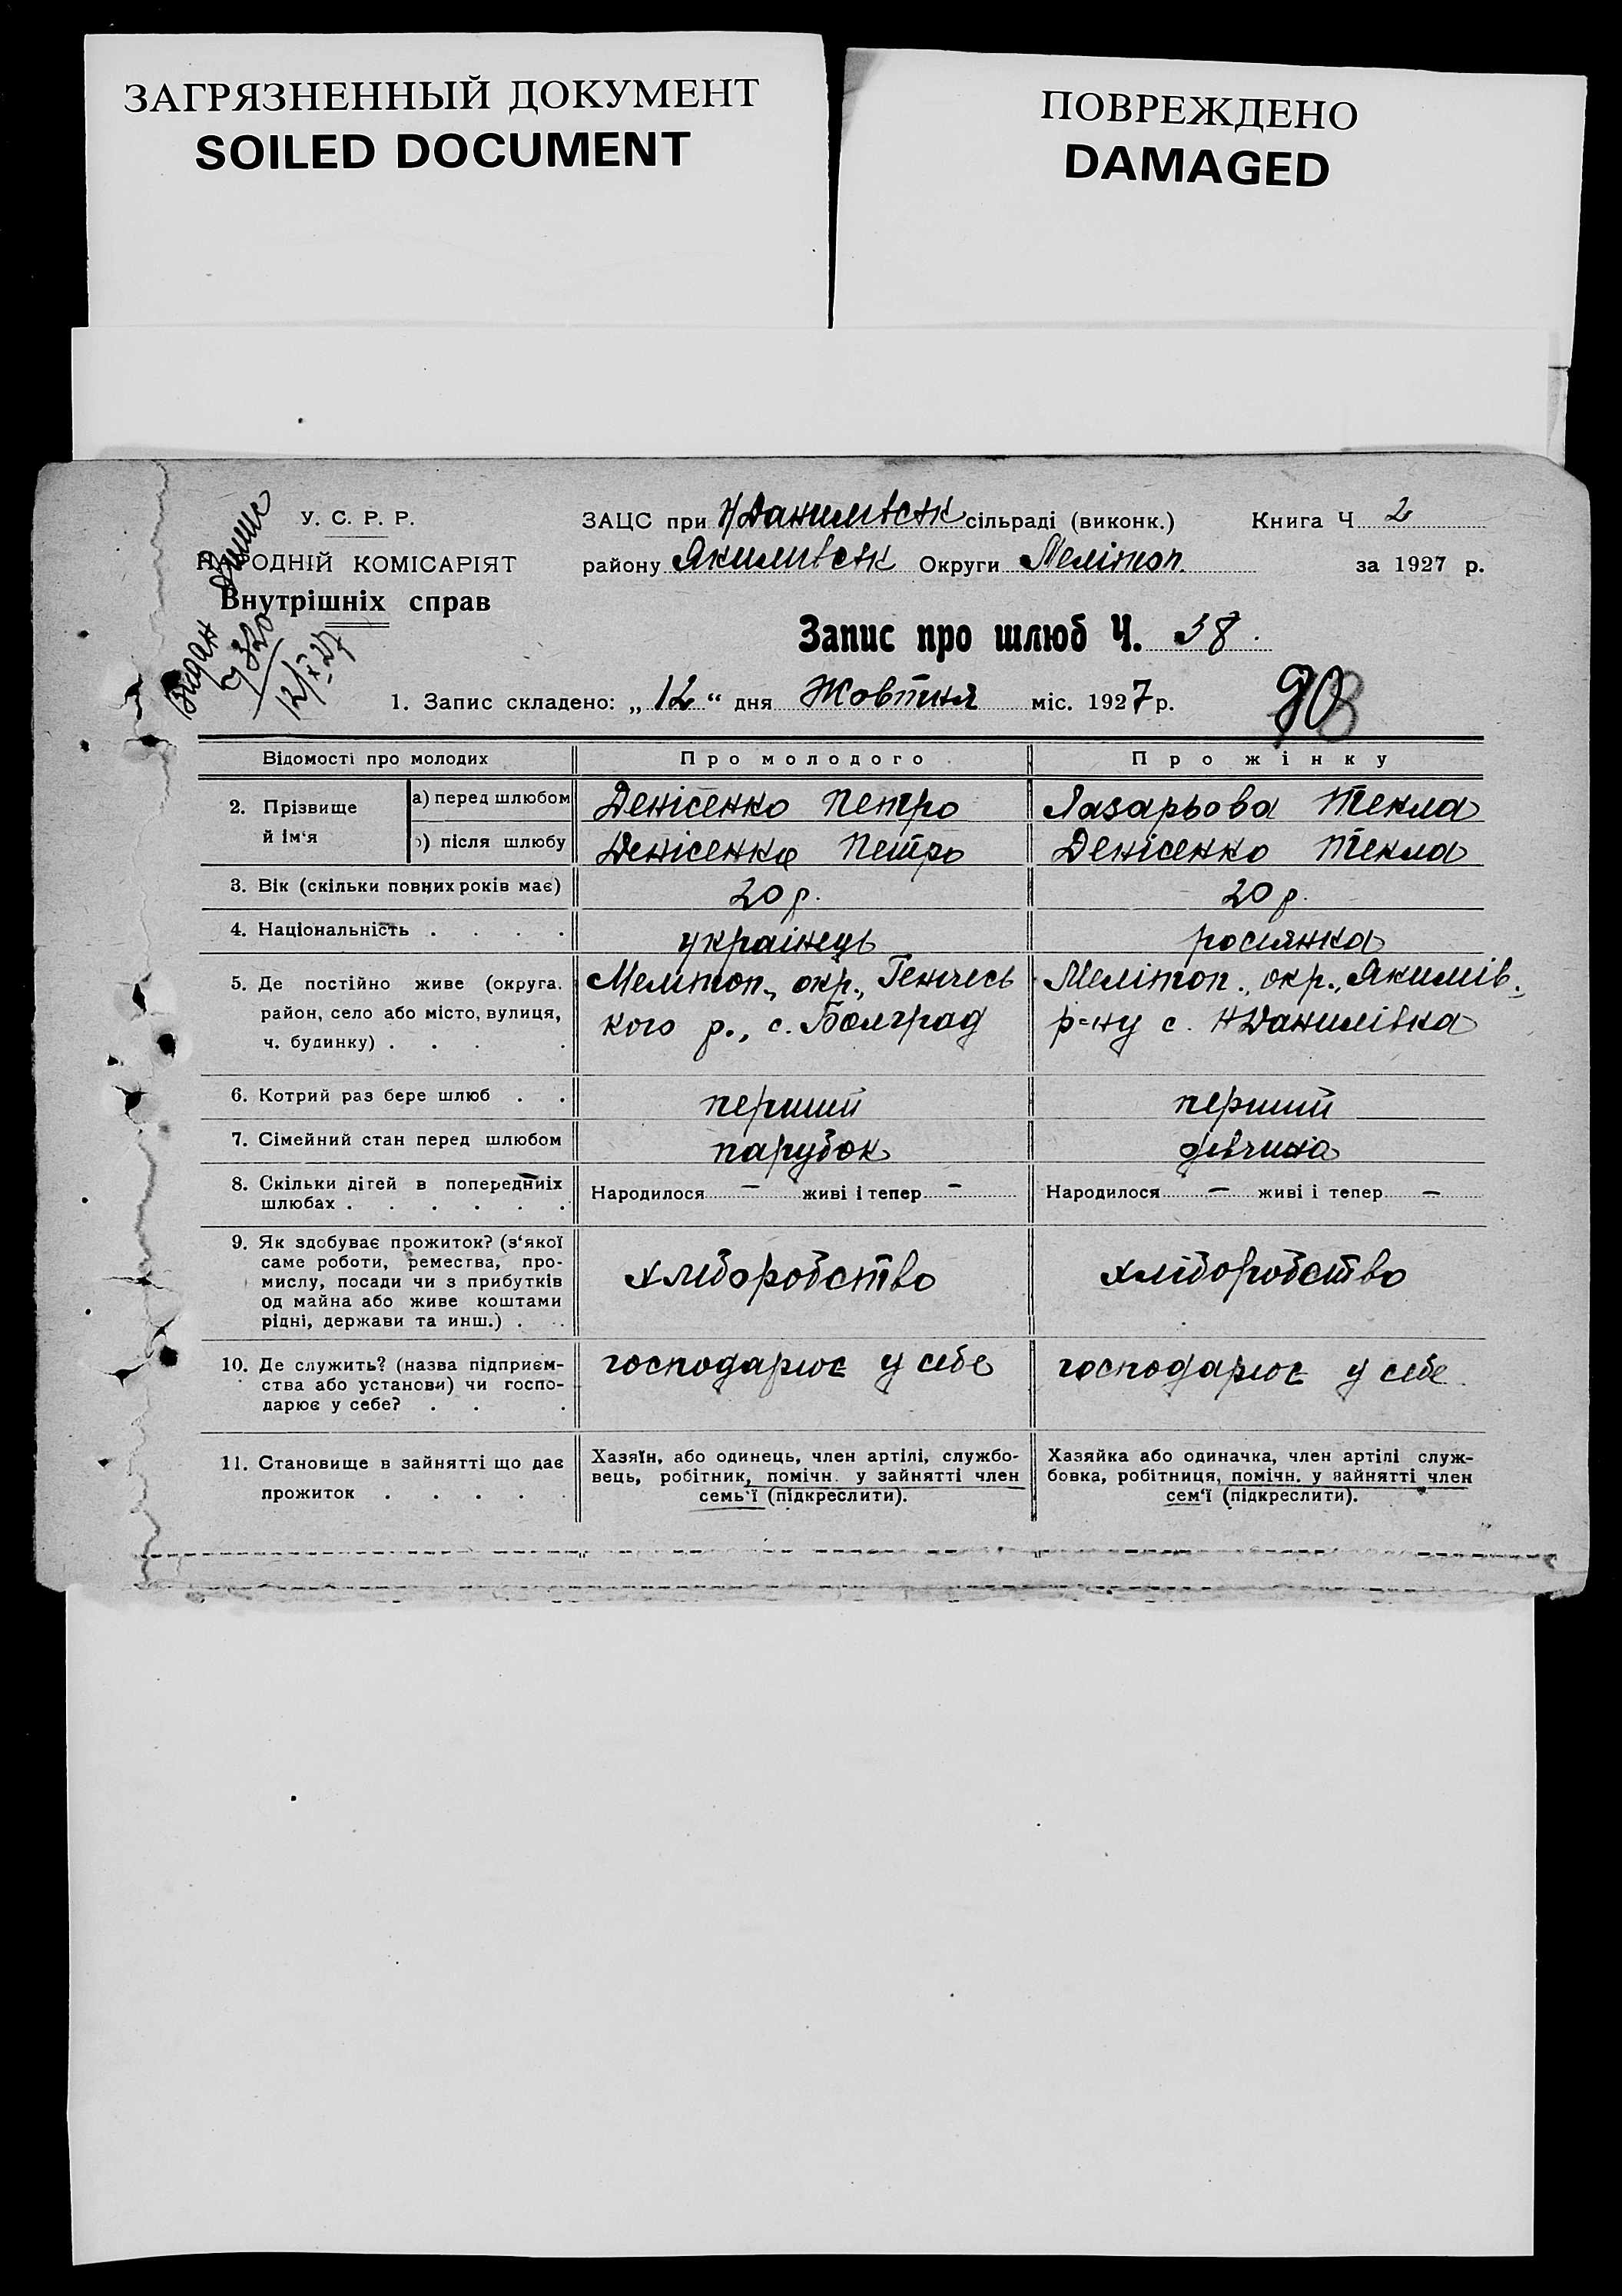 ЗАГРЯЗНЕННЫЙ ДОКУМЕНТ
SOILED DOCUMENT
ПОВРЕЖДЕНО
DAMAGED
У. С. Р. Р.
НАРОДНІЙ КОМІСАРІЯТ
Внутрішніх справ
Видан
320
12/X-27
ЗАЦС при Н/Данилівськ сільраді (виконк.) Книга Ч 2
району Якимівськ Округи Мелітоп. за 1927 р.
Запис про шлюб Ч. 38.
1. Запис складено: „12“ дня Жовтня міс. 1927 р.
90
Відомості про молодих Про молодого Про жінку
2. Прізвище й ім'я
а) перед шлюбом Денісенко Петро Лазарьова Текла
б) після шлюбу Денісенко Петро Денісенко Текла
3. Вік (скільки повних років має) 20 р. 20 р.
4. Національність . . . . українець росіянка
5. Де постійно живе (округа, район, село або місто, вулиця, ч. будинку) . . . .
Мелітоп., окр., Геничесь
кого р., с. Болград
Мелітоп., окр., Якимів.,
р=ну с. НДанилівка
6. Котрий раз бере шлюб . . перший перший
7. Сімейний стан перед шлюбом парубок дівчина
8. Скільки дітей в попередніїх
шлюбах . . . . . .
Народилося — живі і тепер — Народилося — живі і тепер —
9. Як здобуває прожиток? (з'якої
саме роботи, ремества, про-
мислу, посади чи з прибутків
од майна або живе коштами
рідні, держави та инш.) . . .
хліборобство хліборобство
10. Де служить? (назва підприєм-
ства або установи) чи госпо-
дарює у себе? . . .
господарює у себе господарює у себе
11. Становище в зайнятті що дає
прожиток . . . . .
Хазяїн, або одинець, член артілі, службо-
вець, робітник, помічн. у зайнятті член
семь'ї (підкреслити).
Хазяйка або одиначка, член артілі служ-
бовка, робітниця, помічн. у зайнятті член
сем'ї (підкреслити).